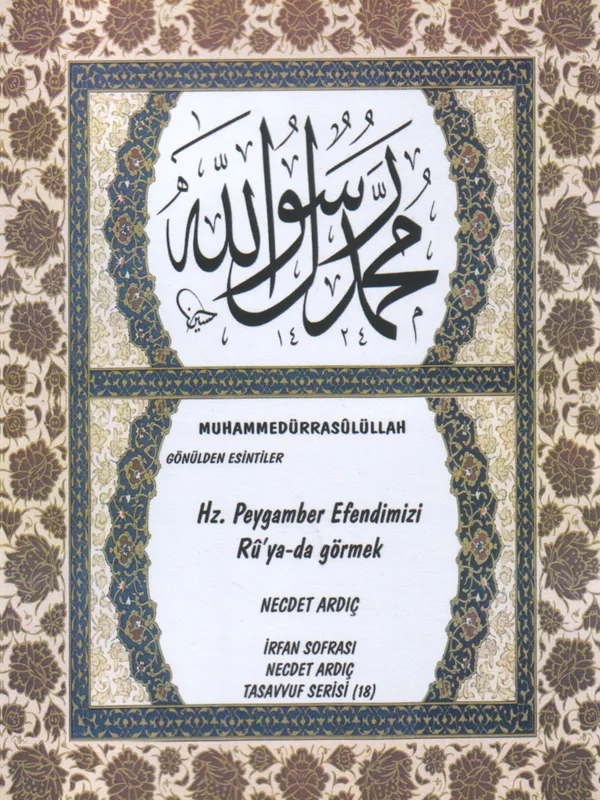 محمد رسول الله
حسين
١٤٢٤
MUHAMMEDÜRRASÛLÜLLAH
GÖNÜLDEN ESİNTİLER
Hz. Peygamber Efendimizi
Rû'ya-da görmek
NECDET ARDIÇ
İRFAN SOFRASI
NECDET ARDIÇ
TASAVVUF SERİSİ (18)